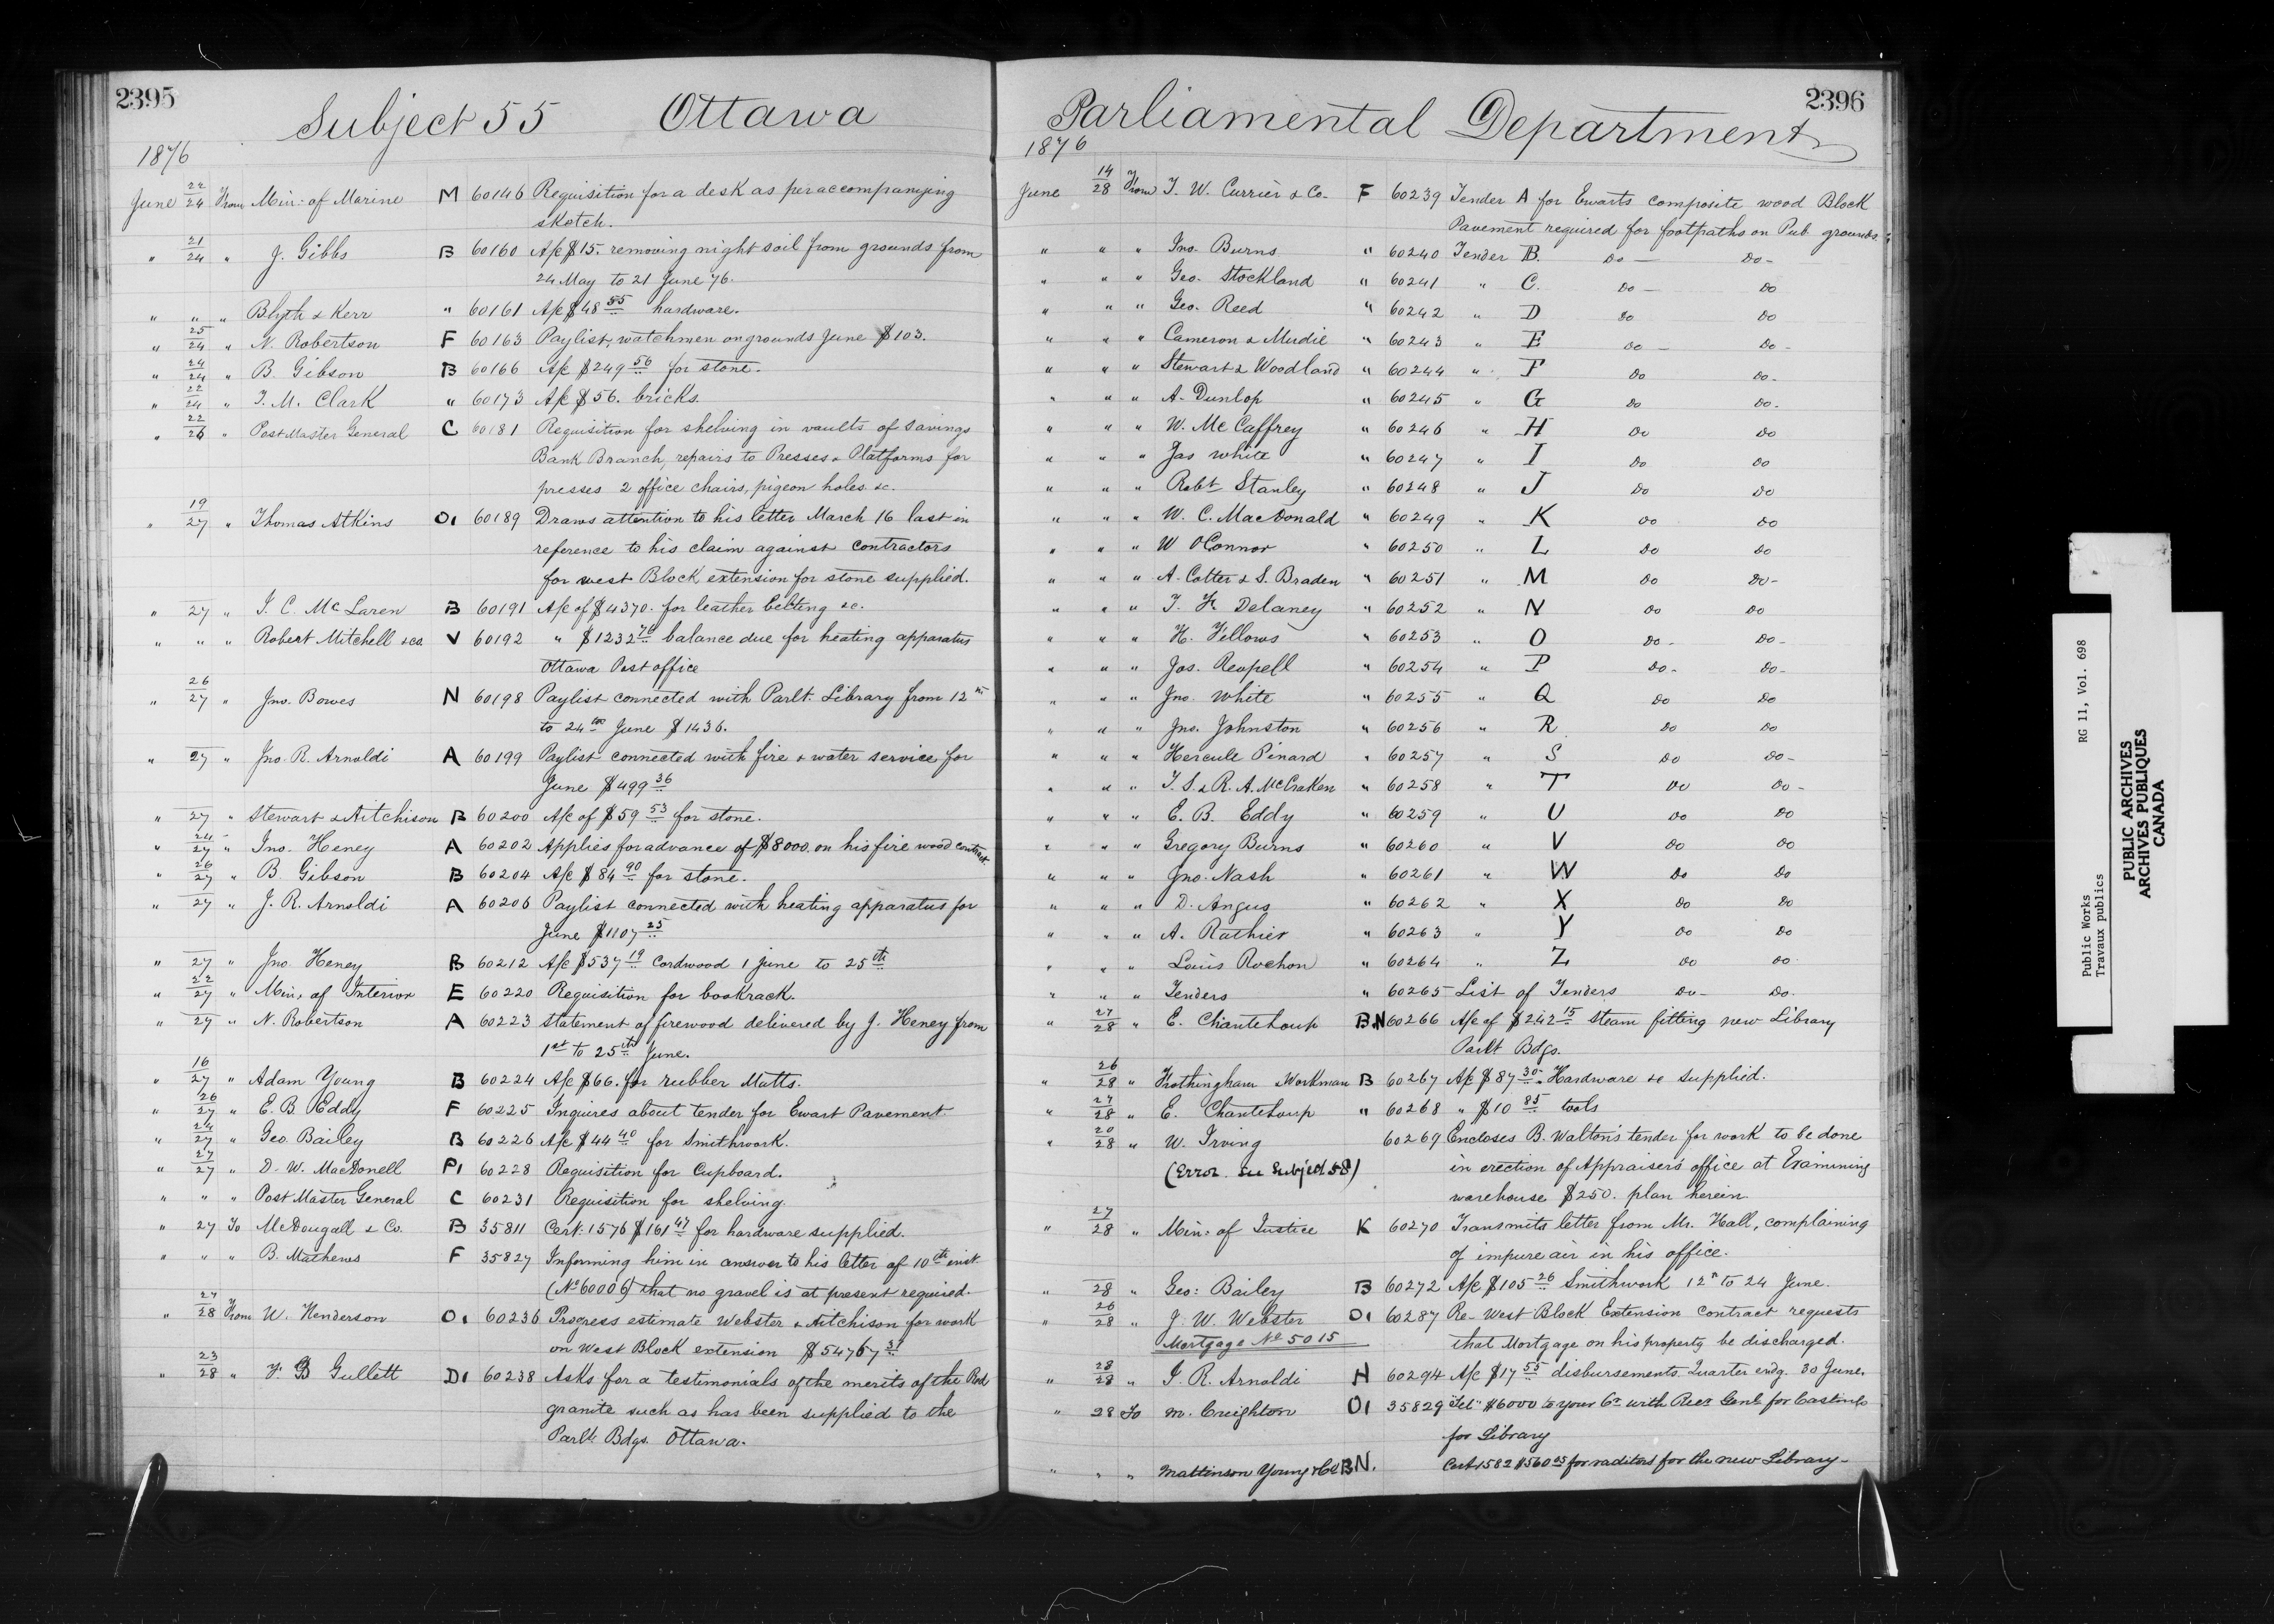 2395
Subject 55 Ottawa
1876
June 22/24 From Min: of Marine M 60146 Requisition for a desk as per accompanying
sketch.
" 21/24 " J. Gibbs B 60160 A/c $15. removing night soil from grounds from
24 May to 21 June 76.
" " " Blyth & Kerr " 60161 A/c $48 55 hardware.
" 25/24 " N. Robertson F 60163 Paylist, watchmen on grounds June $103.
" 24/24 " B. Gibson B 60166 A/c $249 56 for stone.
" 22/24 " T. M. Clark " 60173 A/c $56. bricks.
" 22/26 " Post Master General C 60181 Requisition for shelving in vaults of Savings
Bank Branch, repairs to Presses & Platforms for
presses 2 office chairs, pigeon holes &c.
" 19/27 " Thomas Atkins O1 60189 Draws attention to his letter March 16 last in
reference to his claim against contractors
for west Block extension for stone supplied.
" 27 " J. C. McLaren B 60191 A/c of $4370. for leather belting &c.
" " " Robert Mitchell & co. V 60192 " $1232 70 balance due for heating apparatus
Ottawa Post office
" 26/27 " Jno. Bowes N 60198 Paylist connected with Parlt. Library from 12th
to 24th June $1436.
" 27 " Jno. R. Arnoldi A 60199 Paylist connected with fire & water service for
June $499 36
" 27 " Stewart & Aitchison B 60200 A/c of $59 53 for stone.
" 24/27 " Jno. Heney A 60202 Applies for advance of $8000. on his fire wood contract
" 26/27 " B. Gibson B 60204 A/c $84 90 for stone.
" 27 " J. R. Arnoldi A 60206 Paylist connected with heating apparatus for
June $1107 25
" 27 " Jno. Heney B 60212 A/c $537 19 Cordwood 1 June to 25th
" 22/27 " Min. of Interior E 60220 Requisition for bookrack.
" 27 " N. Robertson A 60223 Statement of firewood delivered by J. Heney from
1st to 25th June.
" 16/27 " Adam Young B 60224 A/c $66. for rubber Matts.
" 26/27 " E. B. Eddy F 60225 Inquires about tender for Ewart Pavement
" 24/27 " Geo. Bailey B 60226 A/c $44 40 for Smithwork.
" 27/27 " D. W. MacDonell P1 60228 Requisition for Cupboard.
" " " Post Master General C 60231 Requisition for shelving.
" 27 To McDougall & Co. B 35811 Cert. 1576 $161 47 for hardware supplied.
" " " B. Mathews F 35827 Informing him in answer to his letter of 10th inst.
(No 60006) that no gravel is at present required.
" 27/28 From W. Henderson O1 60236 Progress estimate Webster & Aitchison for work
on West Block extension $54767 31
" 23/28 " F. B Gullett D1 60238 Asks for a testimonials of the merits of the Red
granite such as has been supplied to the
Parlt. Bdgs. Ottawa.
2396
Parliamental Department
1876
June 14/28 From T. W. Currier & Co. F 60239 Tender A for Ewarts composite wood Block
Pavement required for footpaths on Pub. grounds.
" " " Jno. Burns " 60240 Tender B. Do Do
" " " Geo. Stockland " 60241 " C. Do Do
" " " Geo. Reed " 60242 " D Do Do
" " " Cameron & Mudie " 60243 " E Do Do
" " " Stewart & Woodland " 60244 " F Do Do
" " " A. Dunlop " 60245 " G Do Do
" " " W. McCaffrey " 60246 " H Do Do
" " " Jas White " 60247 " I Do Do
" " " Robt Stanley " 60248 " J Do Do
" " " W. C. MacDonald " 60249 " K Do Do
" " " W OConnor " 60250 " L Do Do
" " " A. Cotter & S. Braden " 60251 " M Do Do
" " " T. K Delaney " 60252 " N Do Do
" " " H. Fellows " 60253 " O Do Do
" " " Jos. Reupell " 60254 " P Do Do
" " " Jno. White " 60255 " Q Do Do
" " " Jno. Johnston " 60256 " R Do Do
" " " Hercule Pinard " 60257 " S Do Do
" " " T. S. & R. A. McCraken " 60258 " T Do Do
" " " E. B. Eddy " 60259 " U Do Do
" " " Gregory Burns " 60260 " V Do Do
" " " Jno. Nash " 60261 " W Do Do
" " " D. Angus " 60262 " X Do Do
" " " A. Rathier " 60263 " Y Do Do
" " " Louis Rochon " 60264 " Z Do Do
" " " Tenders " 60265 List of Tenders Do Do
" 27/28 " E. Chanteloup B.N 60266 A/c of $242 15 steam fitting new Library
Parlt Bdgs.
" 26/28 " Frothingham Workman B 60267 A/c $87 30 Hardware &c supplied.
" 27/28 " E. Chanteloup " 60268 " $10 85 tools
" 20/28 " W. Irving 60269 Encloses B. Walton's tender for work to be done
(Error. See Subject 58) in erection of Appraisers office at Examining
warehouse $250. plan herein
" 27/28 " Min: of Justice K 60270 Transmits letter from Mr. Hall, complaining
of impure air in his office.
" 28 " Geo: Bailey B 60272 A/c $105 26 Smithwork 12th to 24 June.
" 26/28 " J. W. Webster O1 60287 Re- West Block Extension contract requests
Mortgage No 5015 that Mortgage on his property be discharged.
" 28/28 " J. R. Arnoldi H 60294 A/c $17 55 disbursements Quarter endg. 30 June.
" 28 To M. Creighton O1 35829 Tel: $6000 to your Cr. with Recr Genl. for Castings
for Library
" " " Mattinson Young & Co BN. Cert 1582 $560 25 for raditors for the new Library
Public Works RG 11, Vol. 698
Travaux publics
PUBLIC ARCHIVES
ARCHIVES PUBLIQUES
CANADA